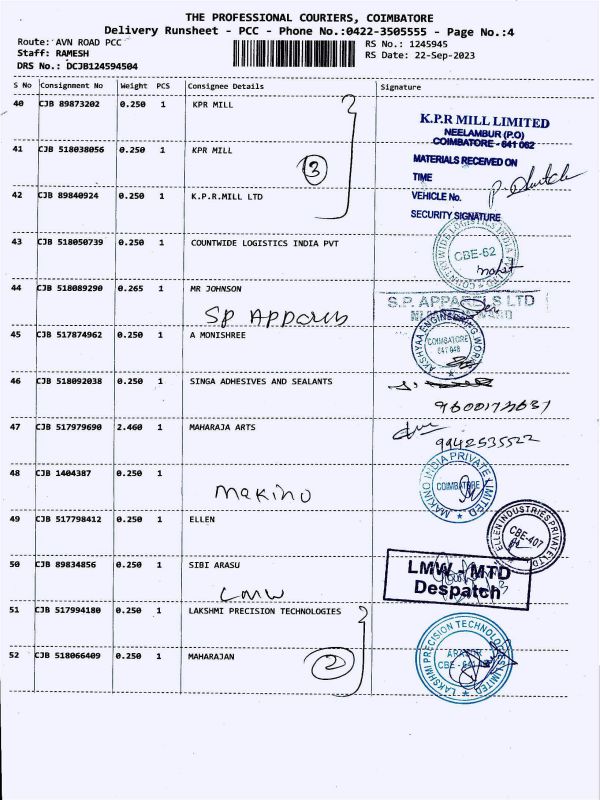 THE PROFESSIONAL COURIERS, COIMBATORE
Delivery Runsheet - PCC - Phone No.:0422-3505555 - Page No.:4
Route: AVN ROAD PCC
RS No.: 1245945
Staff: RAMESH
RS Date: 22-Sep-2023
DRS No.: DCJB124594504
S No Consignment No Weight PCS Consignee Details Signature
40 CJB 89873202 0.250 1 KPR MILL
K.P.R MILL LIMITED
NEELAMBUR (P.O)
COIMBATORE - 641 062
41 CJB 518038056 0.250 1 KPR MILL
MATERIALS RECEIVED ON
3
TIME
42 CJB 89840924 0.250 1 K.P.R.MILL LTD
VEHICLE No.
SECURITY SIGNATURE
43 CJB 518050739 0.250 1 COUNTWIDE LOGISTICS INDIA PVT
CBE-62
44 CJB 518089290 0.265 1 MR JOHNSON
S.P. APPARELS LTD
SP Apparels
45 CJB 517874962 0.250 1 A MONISHREE
AKSHYAA ENGINEERING WORKS
COIMBATORE
641 048
46 CJB 518092038 0.250 1 SINGA ADHESIVES AND SEALANTS
47 CJB 517979690 2.460 1 MAHARAJA ARTS
9942535522
48 CJB 1404387 0.250 1
MAKINO INDIA PRIVATE LIMITED
COIMBATORE
Makino
49 CJB 517798412 0.250 1 ELLEN
ELLEN INDUSTRIES PRIVATE LTD
CBE-407
50 CJB 89834856 0.250 1 SIBI ARASU
LMW - MTD
Despatch
LMW
51 CJB 517994180 0.250 1 LAKSHMI PRECISION TECHNOLOGIES
LAKSHMI PRECISION TECHNOLOGIES LIMITED
2
52 CJB 518066409 0.250 1 MAHARAJAN